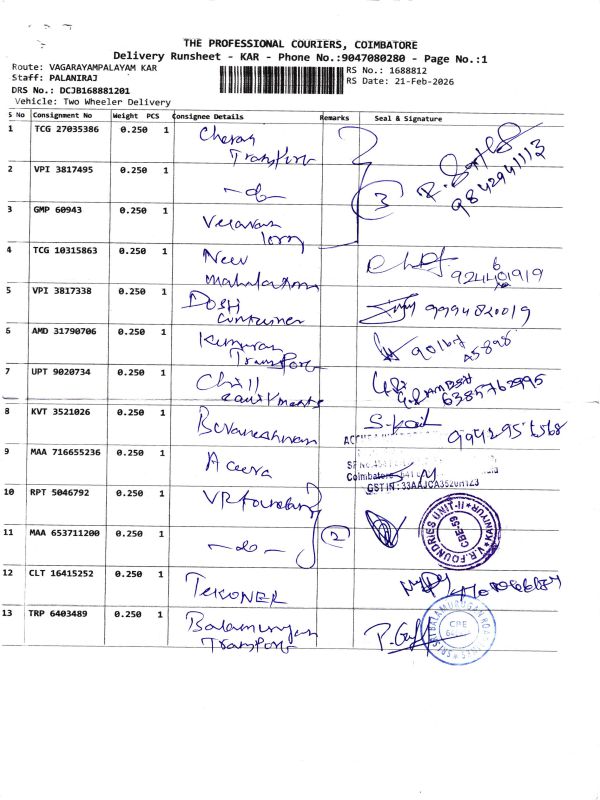 THE PROFESSIONAL COURIERS, COIMBATORE
Delivery Runsheet - KAR - Phone No.:9047080280 - Page No.:1
Route: VAGARAYAMPALAYAM KAR
RS No.: 1688812
Staff: PALANIRAJ
RS Date: 21-Feb-2026
DRS No.: DCJB168881201
Vehicle: Two Wheeler Delivery
S No Consignment No Weight PCS Consignee Details Remarks Seal & Signature
1 TCG 27035386 0.250 1 Cheran Transport
9842941113
2 VPI 3817495 0.250 1 -do-
3
3 GMP 60943 0.250 1 lorry
4 TCG 10315863 0.250 1 New mahalakshmi
5 VPI 3817338 0.250 1 DOSH Container 9994820019
6 AMD 31790706 0.250 1 Kumaran Transport 90167 45898
7 UPT 9020734 0.250 1 Chill equitments 6385762995
8 KVT 3521026 0.250 1 S. 9942956568
9 MAA 716655236 0.250 1
Coimbatore
GSTIN: 33AAJCA3520H1Z3
10 RPT 5046792 0.250 1 VR foundary
V.R. FOUNDRIES UNIT-II KANIYUR
CBE-59
11 MAA 653711200 0.250 1 -do- 2
12 CLT 16415252 0.250 1 TEKONER
13 TRP 6403489 0.250 1 Balamurugan Transport
SRI BALAMURUGAN
CBE